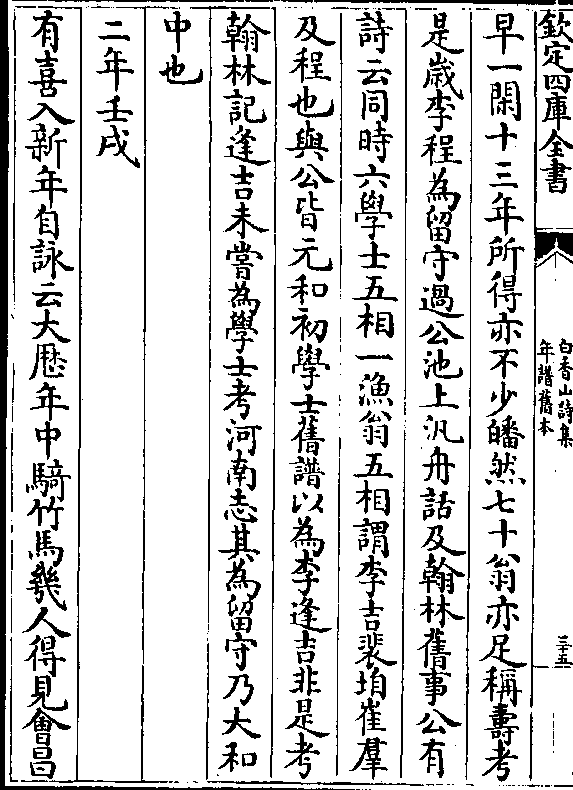 欽定四庫全書
白香山詩集
年譜舊本
三十五
早一閑十三年所得亦不少皤然七十翁亦足稱壽考
是歲李程為留守過公池上汎舟話及翰林舊事公有
詩云同時六學士五相一漁翁五相謂李吉裴垍崔羣
及程也與公皆元和初學士舊譜以為李逢吉非是考
翰林記逢吉未嘗為學士考河南志其為留守乃大和
中也
二年壬戌
有喜入新年自詠云大歷年中騎竹馬幾人得見會昌